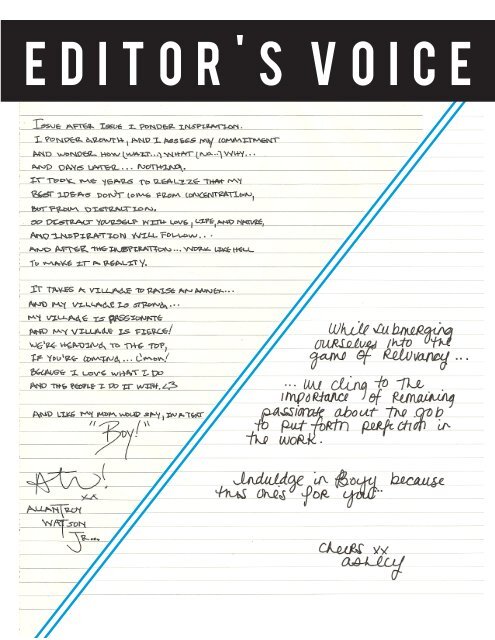 EDITOR'S VOICE
ISSUE AFTER ISSUE I PONDER INSPIRATION.
I PONDER GROWTH, AND I ASSESS MY COMMITMENT
AND WONDER HOW (WAIT...) WHAT (NO...) WHY...
AND DAYS LATER... NOTHING.
IT TOOK ME YEARS TO REALIZE THAT MY
BEST IDEAS DON'T COME FROM CONCENTRATION,
BUT FROM DISTRACTION.
SO DISTRACT YOURSELF WITH LOVE, LIFE, AND NATURE,
AND INSPIRATION WILL FOLLOW...
AND AFTER THE INSPIRATION... WORK LIKE HELL
TO MAKE IT A REALITY.
IT TAKES A VILLAGE TO RAISE AN
AND MY VILLAGE IS STRONG...
MY VILLAGE IS PASSIONATE
AND MY VILLAGE IS FIERCE!
WE'RE HEADING TO THE TOP,
IF YOU'RE COMING... C'MON!
BECAUSE I LOVE WHAT I DO
AND THE PEOPLE I DO IT WITH. <3
AND LIKE MY MOM WOULD SAY, IN A TEXT
"Boy!"
ATW!
xx
ALLAN TROY
WATSON
JR...
While submerging
ourselves into the
game of Reluvancy...
... we cling to The
importance of Remaining
passionate about the job
to put forth perfection in
the work.
Induldge in Boyy because
this ones for you...
cheers xx
ashley